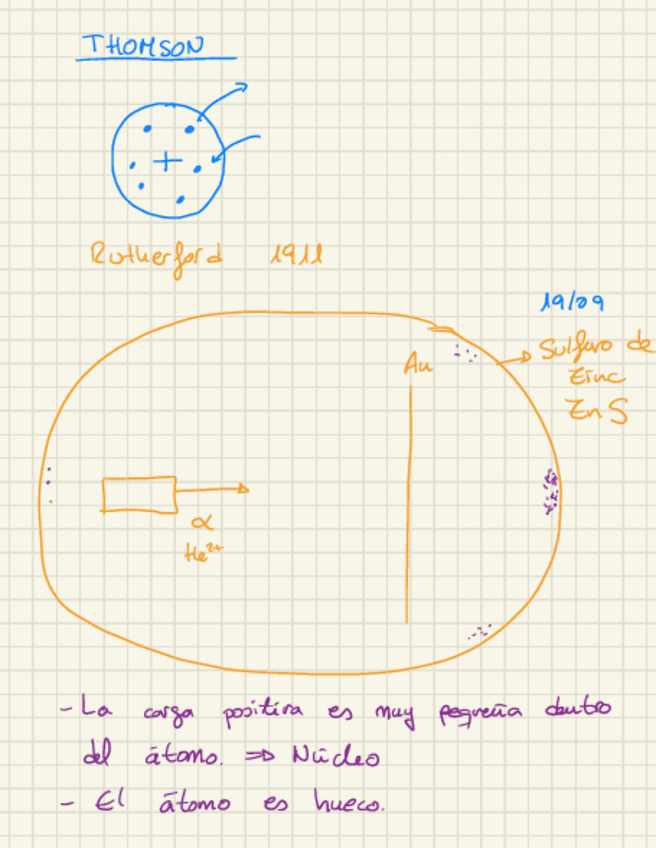 THOMSON
+
Rutherford 1911
19/09
Au
Sulfuro de
Zinc
ZnS
α
He²⁺
- La carga positiva es muy pequeña dentro
del átomo. ⇒ Núcleo
- El átomo es hueco.